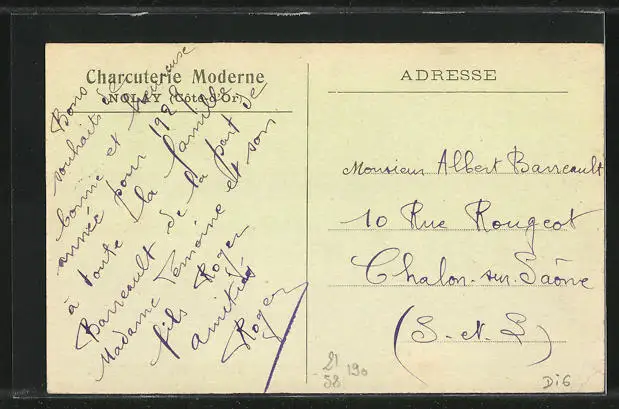 Charcuterie Moderne
NOLAY (Côte-d'Or)
Bons
souhaits de
bonne et heureuse
année pour 192
à toute la famille
Barreault de la part de
Madame Lemoine et son
fils Roger
amitiés
Roger
ADRESSE
Monsieur Albert Barreault
10 Rue Rougeot
Chalon-sur-Saône
(S-et-L)
21
58
190
Di6